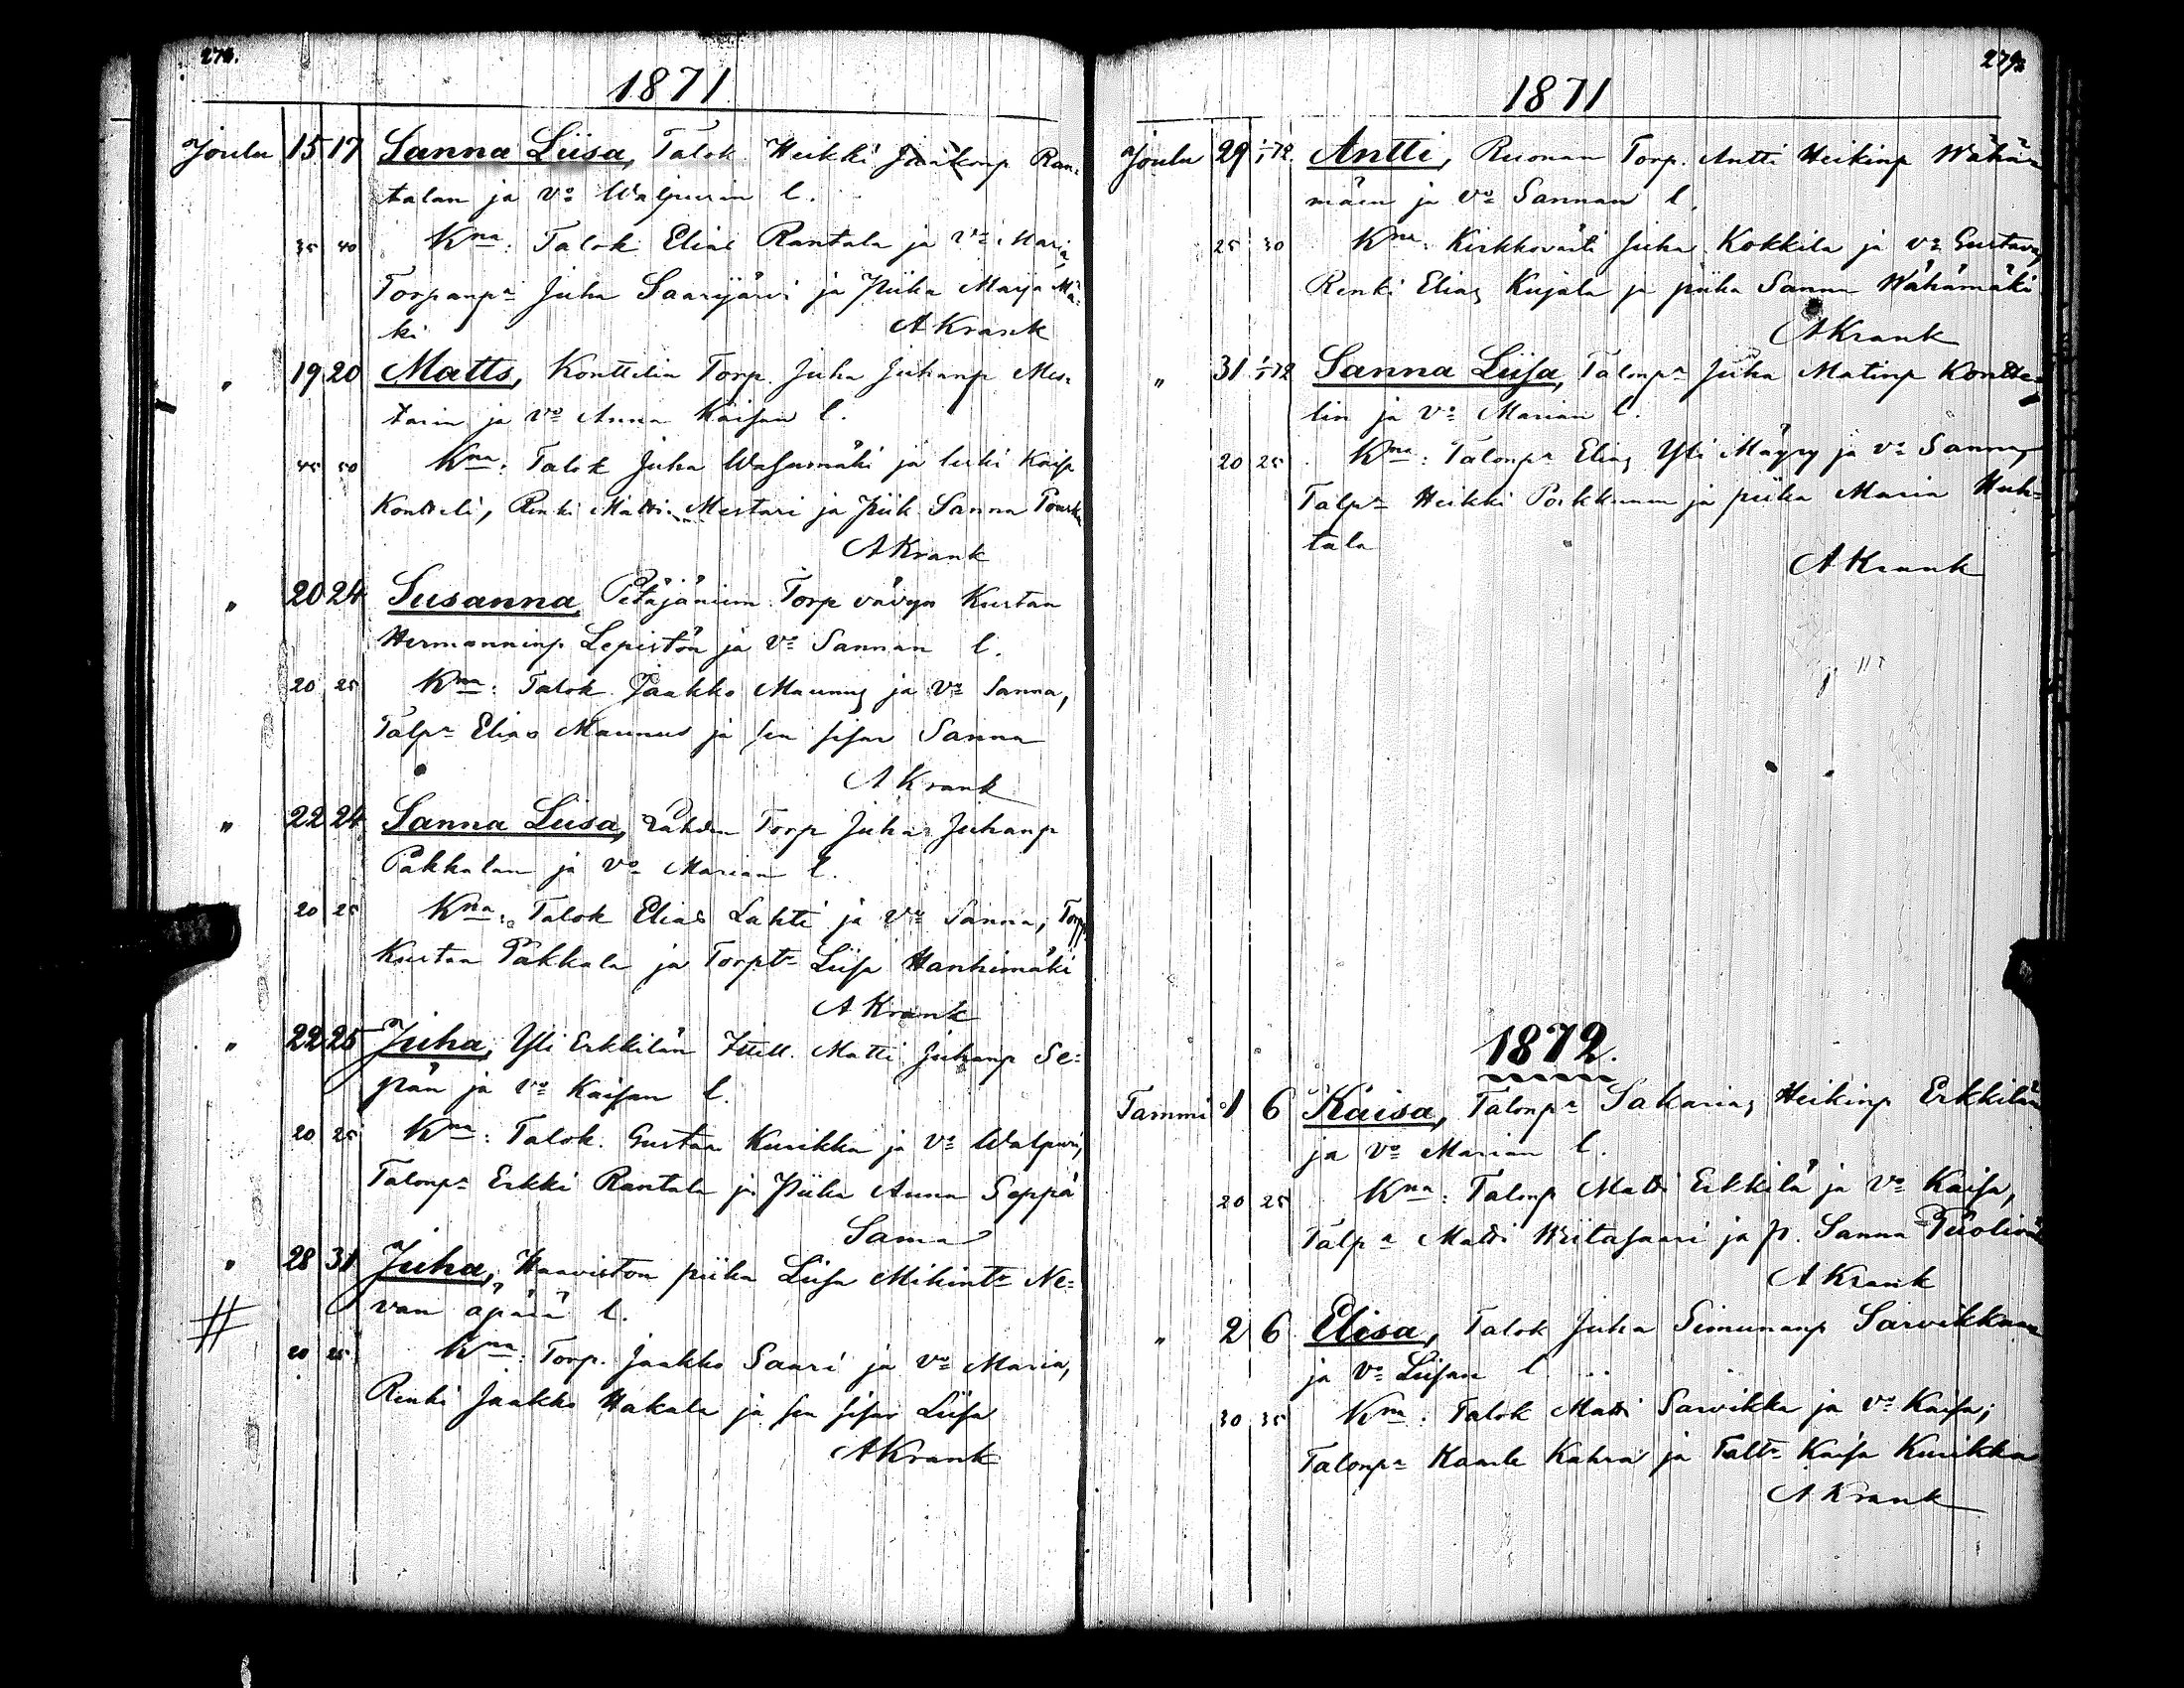 278.
1871
Joulu 15 17 Sanna Liisa, Talok Heikki Jaakonp Ran-
talan ja vo Walpurin l.
35 40 Kna: Talok Elias Rantala ja vo Maria,
Torpanpa Juha Saarijärvi ja Piika Maija Mä-
ki A Krank
" 19 20 Matts, Konttelin Torp. Juha Juhanp Mes-
tarin ja vo Anna Kaisan l.
45 50 Kna: Talok Juha Wasunmäki ja leski Kaisa
Kontteli, Renki Matti Mestari ja Piik Sanna
A Krank
" 20 24 Susanna, Petäjäniem Torp vävyn Kustaa
Hermanninp Lepistön ja vo Sannan l.
20 25 Kna: Talok Jaakko Maunus ja vo Sanna,
Talpa Elias Maunus ja sen sisar Sanna
A Krank
" 22 24 Sanna Liisa, Lahden Torp Juha Juhanp
Pakkalan ja vo Marian l.
20 25 Kna: Talok Elias Lahti ja vo Sanna, Torp
Kustaa Pakkala ja Torpt Liisa Hanhimäki
A Krank
" 22 25 Juha, Yli Erkkilän Itsell. Matti Juhanp Se-
pän ja vo Kaisan l.
20 25 Kna: Talok. Gustaa Kurikka ja vo Walpuri,
Talonpa Erkki Rantala ja Piika Anna Seppä
Sama
" 28 31 Juha, Haaviston piika Liisa Mikint Ne-
van äpärä l.
#
20 25 Kna: Torp. Jaakko Saari ja vo Maria,
Renki Jaakko Hakala ja sen sisar Liisa
A Krank
279.
1871
Joulu 29 1/1 72. Antti, Ruonan Torp. Antti Heikinp Wähän
mäen ja vo Sannan l.
25 30 Kna: Kirkkoväti Juha Kokkila ja vo Gustava,
Renki Elias Kujala ja piika Sanna Wähämäki
A Krank
" 31 1/1 72 Sanna Liisa, Talonpa Juha Matinp Kontte-
lin ja vo Marian l.
20 25 Kna: Talonpa Elias Yli Mäyry ja vo Sanna,
Talpa Heikki Porkkunen ja piika Maria Huh-
tala
A Krank
1872.
Tammi 1 6 Kaisa, Talonpa Sakarias Heikinp Erkkilän
ja vo Marian l.
20 25 Kna: Talonp Matti Erkkilä ja vo Kaisa,
Talpa Matti Wiitasaari ja p. Sanna
A Krank
" 2 6 Elisa, Talok Juha Simunanp Sarvikkaan
ja vo Liisan l.
30 35 Kna: Talok Matti Sarvikka ja vo Kaisa;
Talonpa Kaarle Kahra ja Talt Kaisa Kurikka
A Krank